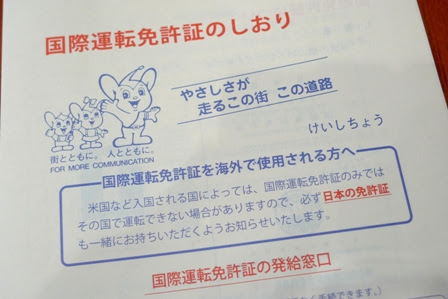 国際運転免許証のしおり
やさしさが
走るこの街 この道路
街とともに。人とともに。
FOR MORE COMMUNICATION
けいしちょう
国際運転免許証を海外で使用される方へ
米国など入国される国によっては、国際運転免許証のみでは
その国で運転できない場合がありますので、必ず日本の免許証
も一緒にお持ちいただくようお知らせいたします。
国際運転免許証の発給窓口
手続できます。)